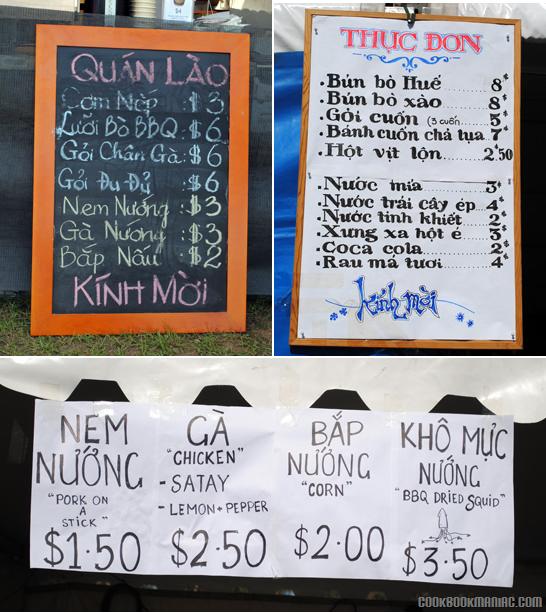 QUÁN LÀO
Cơm Nếp : $3
Lưỡi Bò BBQ : $6
Gỏi Chân Gà : $6
Gỏi Đu Đủ $6
Nem Nướng : $3
Gà Nướng : $3
Bắp Nấu : $2
KÍNH MỜI
THỰC ĐƠN
• Bún bò Huế ........ 8$
• Bún bò xào ........ 8$
• Gỏi cuốn (3 cuốn) ..... 5$
• Bánh cuốn chả lụa .. 7$
• Hột vịt lộn ........ 2$50
• Nước mía ........ 3$
• Nước trái cây ép .... 4$
• Nước tinh khiết ..... 2$
• Xưng xa hột é ...... 3$
• Coca cola ........ 2$
• Rau má tươi ........ 4$
kính mời
NEM
NƯỚNG
"PORK ON
A
STICK"
$1.50
GÀ
"CHICKEN"
- SATAY
- LEMON + PEPPER
$2.50
BẮP
NƯỚNG
"CORN"
$2.00
KHÔ MỰC
NƯỚNG
"BBQ DRIED SQUID"
$3.50
COOKBOOKMANIAC.COM